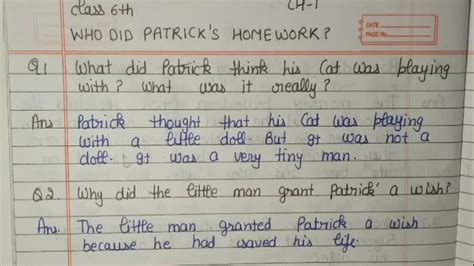 class 6th CH-1
WHO DID PATRICK'S HOMEWORK?
DATE
PAGE No.
Q1 What did Patrick think his Cat was playing
with? What was it really?
Ans Patrick thought that his Cat was playing
with a little doll. But It was not a
doll. It was a very tiny man.
Q2. Why did the little man grant Patrick' a wish?
Ans. The little man granted Patrick a wish
because he had saved his life.